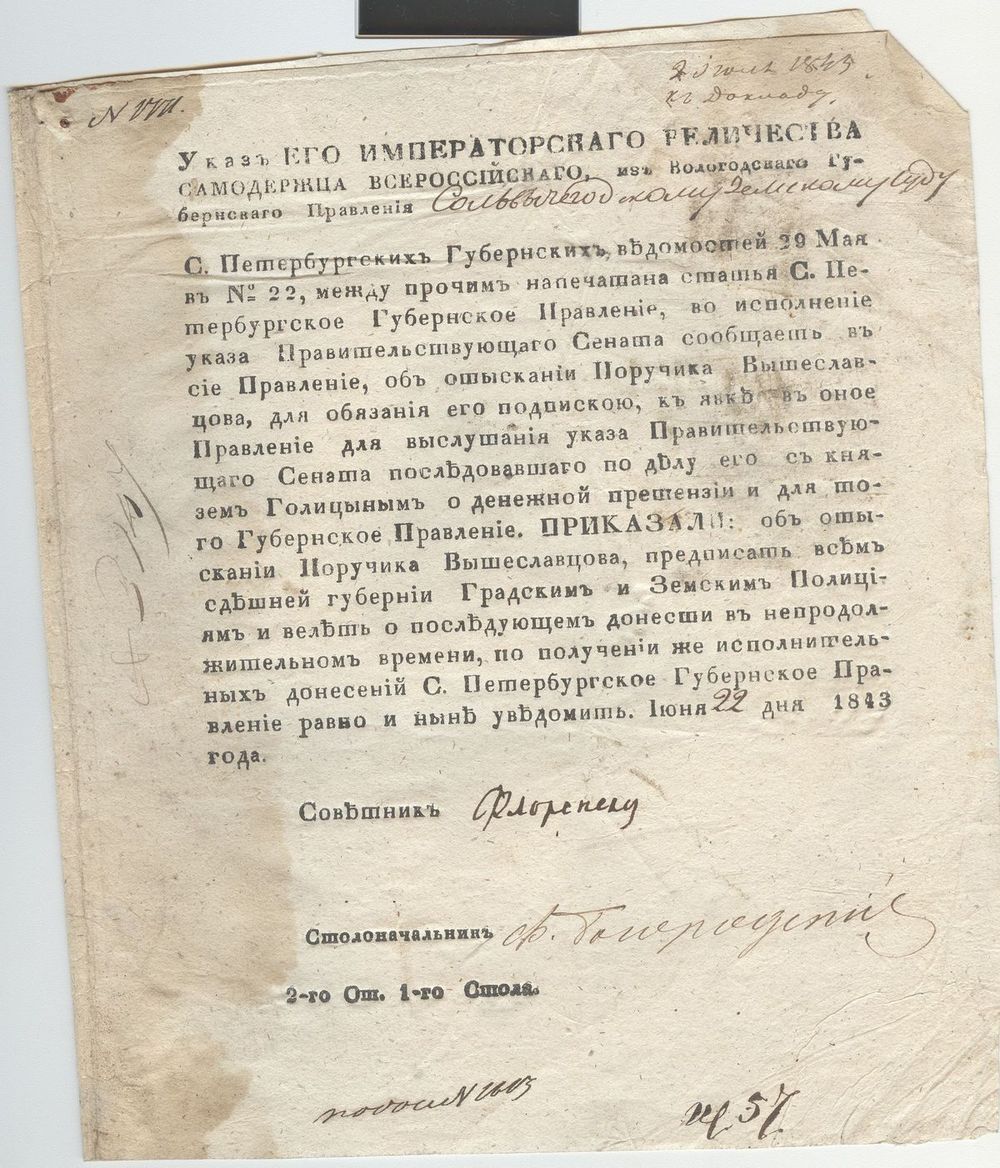 2 Июля 1843
къ докладу.
Указъ ЕГО ИМПЕРАТОРСКАГО ВЕЛИЧЕСТВА
САМОДЕРЖЦА ВСЕРОССІЙСКАГО, изъ Вологодскаго Гу-
бернскаго Правленія Сольвычегодскому Земскому Суду
С. Петербургскихъ Губернскихъ вѣдомостей 29 Мая
въ № 22, между прочимъ напечатана статья С. Пе-
тербургское Губернское Правленіе, во исполненіе
указа Правительствующаго Сената сообщаетъ въ
сіе Правленіе, объ отысканіи Поручика Вышеслав-
цова, для обязанія его подпискою, къ явкѣ въ оное
Правленіе для выслушанія указа Правительствую-
щаго Сената послѣдовавшаго по дѣлу его съ кня-
земъ Голицынымъ о денежной претензіи и для то-
го Губернское Правленіе. ПРИКАЗАЛИ: объ оты-
сканіи Поручика Вышеславцова, предписать всѣмъ
сдѣшней губерніи Градскимъ и Земскимъ Полиці-
ямъ и велѣть о послѣдующемъ донести въ непродол-
жительномъ времени, по полученіи же исполнитель-
ныхъ донесеній С. Петербургское Губернское Пра-
вленіе равно и нынѣ увѣдомить. Іюня 22 дня 1843
года.
Совѣтникъ
Столоначальникъ
2-го От. 1-го Стола.
№
57